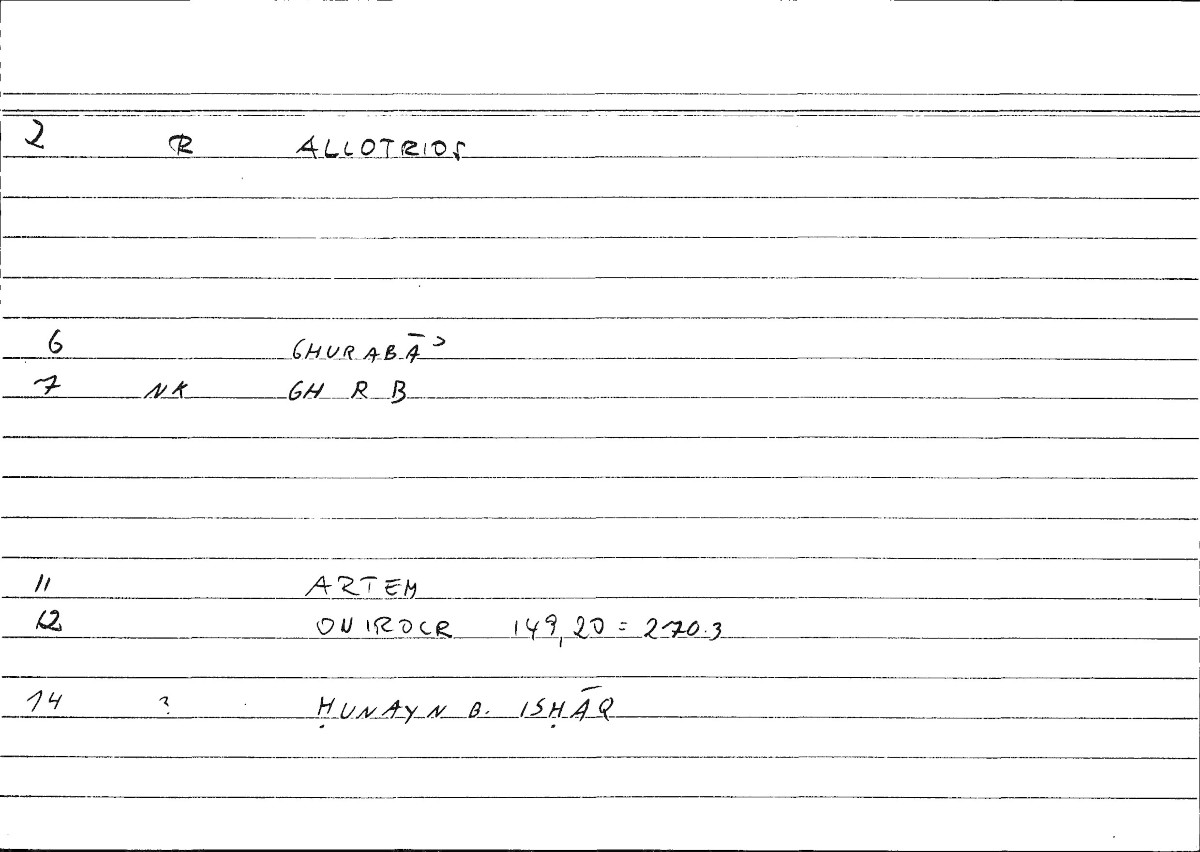 2 R ALLOTRIOS
6 GHURABĀʾ
7 NK GH R B
11 ARTEM
12 ONIROCR 149,20 = 270.3
14 ? ḤUNAYN B. ISḤĀQ